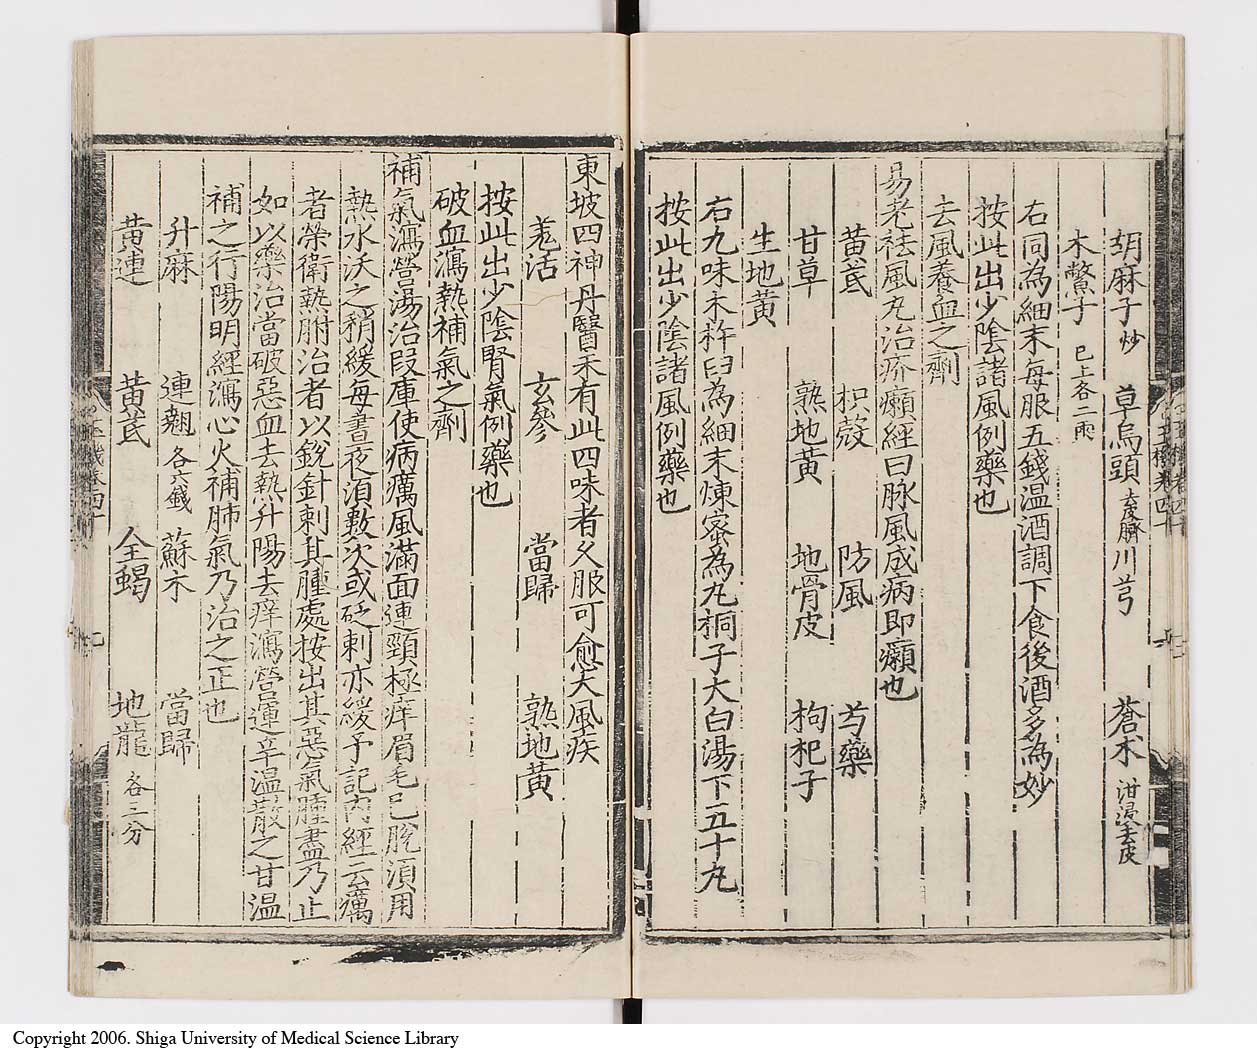 胡麻子炒 草烏頭去皮臍 川芎 蒼朮泔浸去皮
木鱉子 已上各二兩
右同為細末每服五錢温酒調下食後酒多為妙
按此出少陰諸風例藥也
去風養血之劑
易老祛風丸治疥癩經曰脉風成病即癩也
黃芪 枳殼 防風 芍藥
甘草 熟地黃 地骨皮 枸杞子
生地黃
右九味木杵臼為細末煉蜜為丸桐子大白湯下五十丸
按此出少陰諸風例藥也
東坡四神丹醫禾有此四味者久服可愈大風疾
羌活 玄參 當歸 熟地黃
按此出少陰腎氣例藥也
破血瀉熱補氣之劑
補氣瀉營湯治段庫使病癘風滿面連頸極痒眉毛已脫湏用
熱水沃之稍緩每晝夜湏數次或砭刺亦緩予記內經云癘
者榮衛熱胕治者以銳針刺其腫處按出其惡氣腫盡乃止
如以藥治當破惡血去熱升陽去痒瀉營運辛温散之甘温
補之行陽明經瀉心火補肺氣乃治之正也
升麻 連翹各六錢 蘇木 當歸
黃連 黃芪 全蝎 地龍各三分
Copyright 2006. Shiga University of Medical Science Library